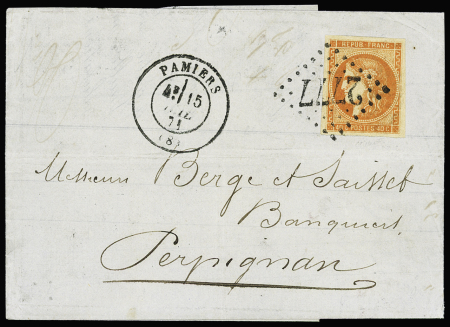 REPUB. FRANC.
2777
POSTES 40 C
PAMIERS
15
71
(8)
Messieurs Berge et Saisset
Banquiers
Perpignan